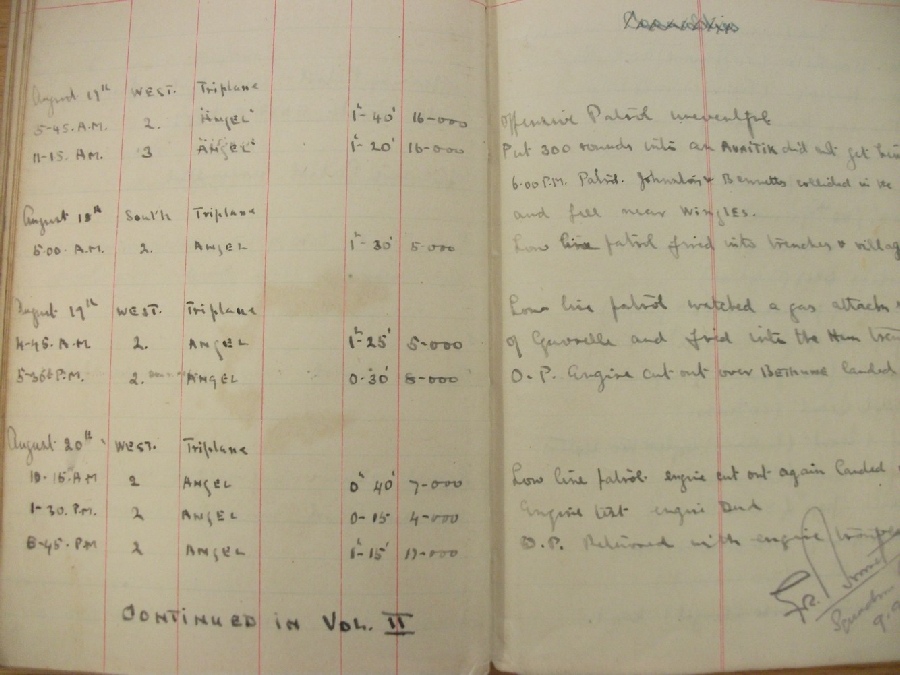 August 17th WEST. Triplane
5-45. A.M. 2. "ANGEL" 1h-40' 16-000 Offensive Patrol uneventful
11-15. AM. 3 "ANGEL" 1h-20' 16-000 Put 300 rounds into an AVIATIK did not get him
6.00 P.M. Patrol. Johnston & Bennetts collided in the
and fell near WINGLES.
August 18th South Triplane
5-00. A.M. 2. ANGEL 1h-30' 5-000 Low line patrol fired into trenches & villag
August 19th WEST. Triplane Low line patrol watched a gas attack
4-45. A.M 2. ANGEL 1h-25' 5-000 of Gavrelle and fired into the Hun tren
P.M. 2. ANGEL 0-30' 8-000 O.P. Engine cut out over BETHUNE landed
August 20th WEST. Triplane
10-15. A.M 2 ANGEL 0h 40' 7-000 Low line patrol engine cut out again landed
1-30. P.M. 2 ANGEL 0-15 4-000 Engine test engine Dud
6-45. P.M 2 ANGEL 1h-15' 17-000 O.P. Returned with engine
Squadron
CONTINUED IN VOL. II